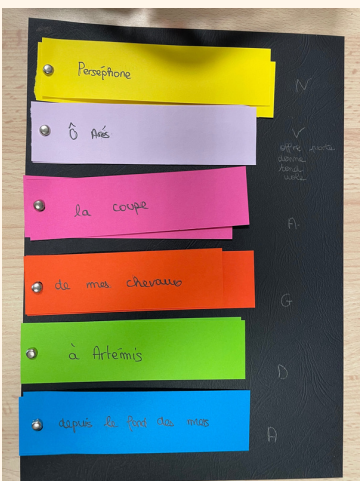 Perséphone
N
Ô Arès
V
offre
donne
tend
la coupe
A
de mes chevaux
G
à Artémis
D
depuis le fond des mers
A